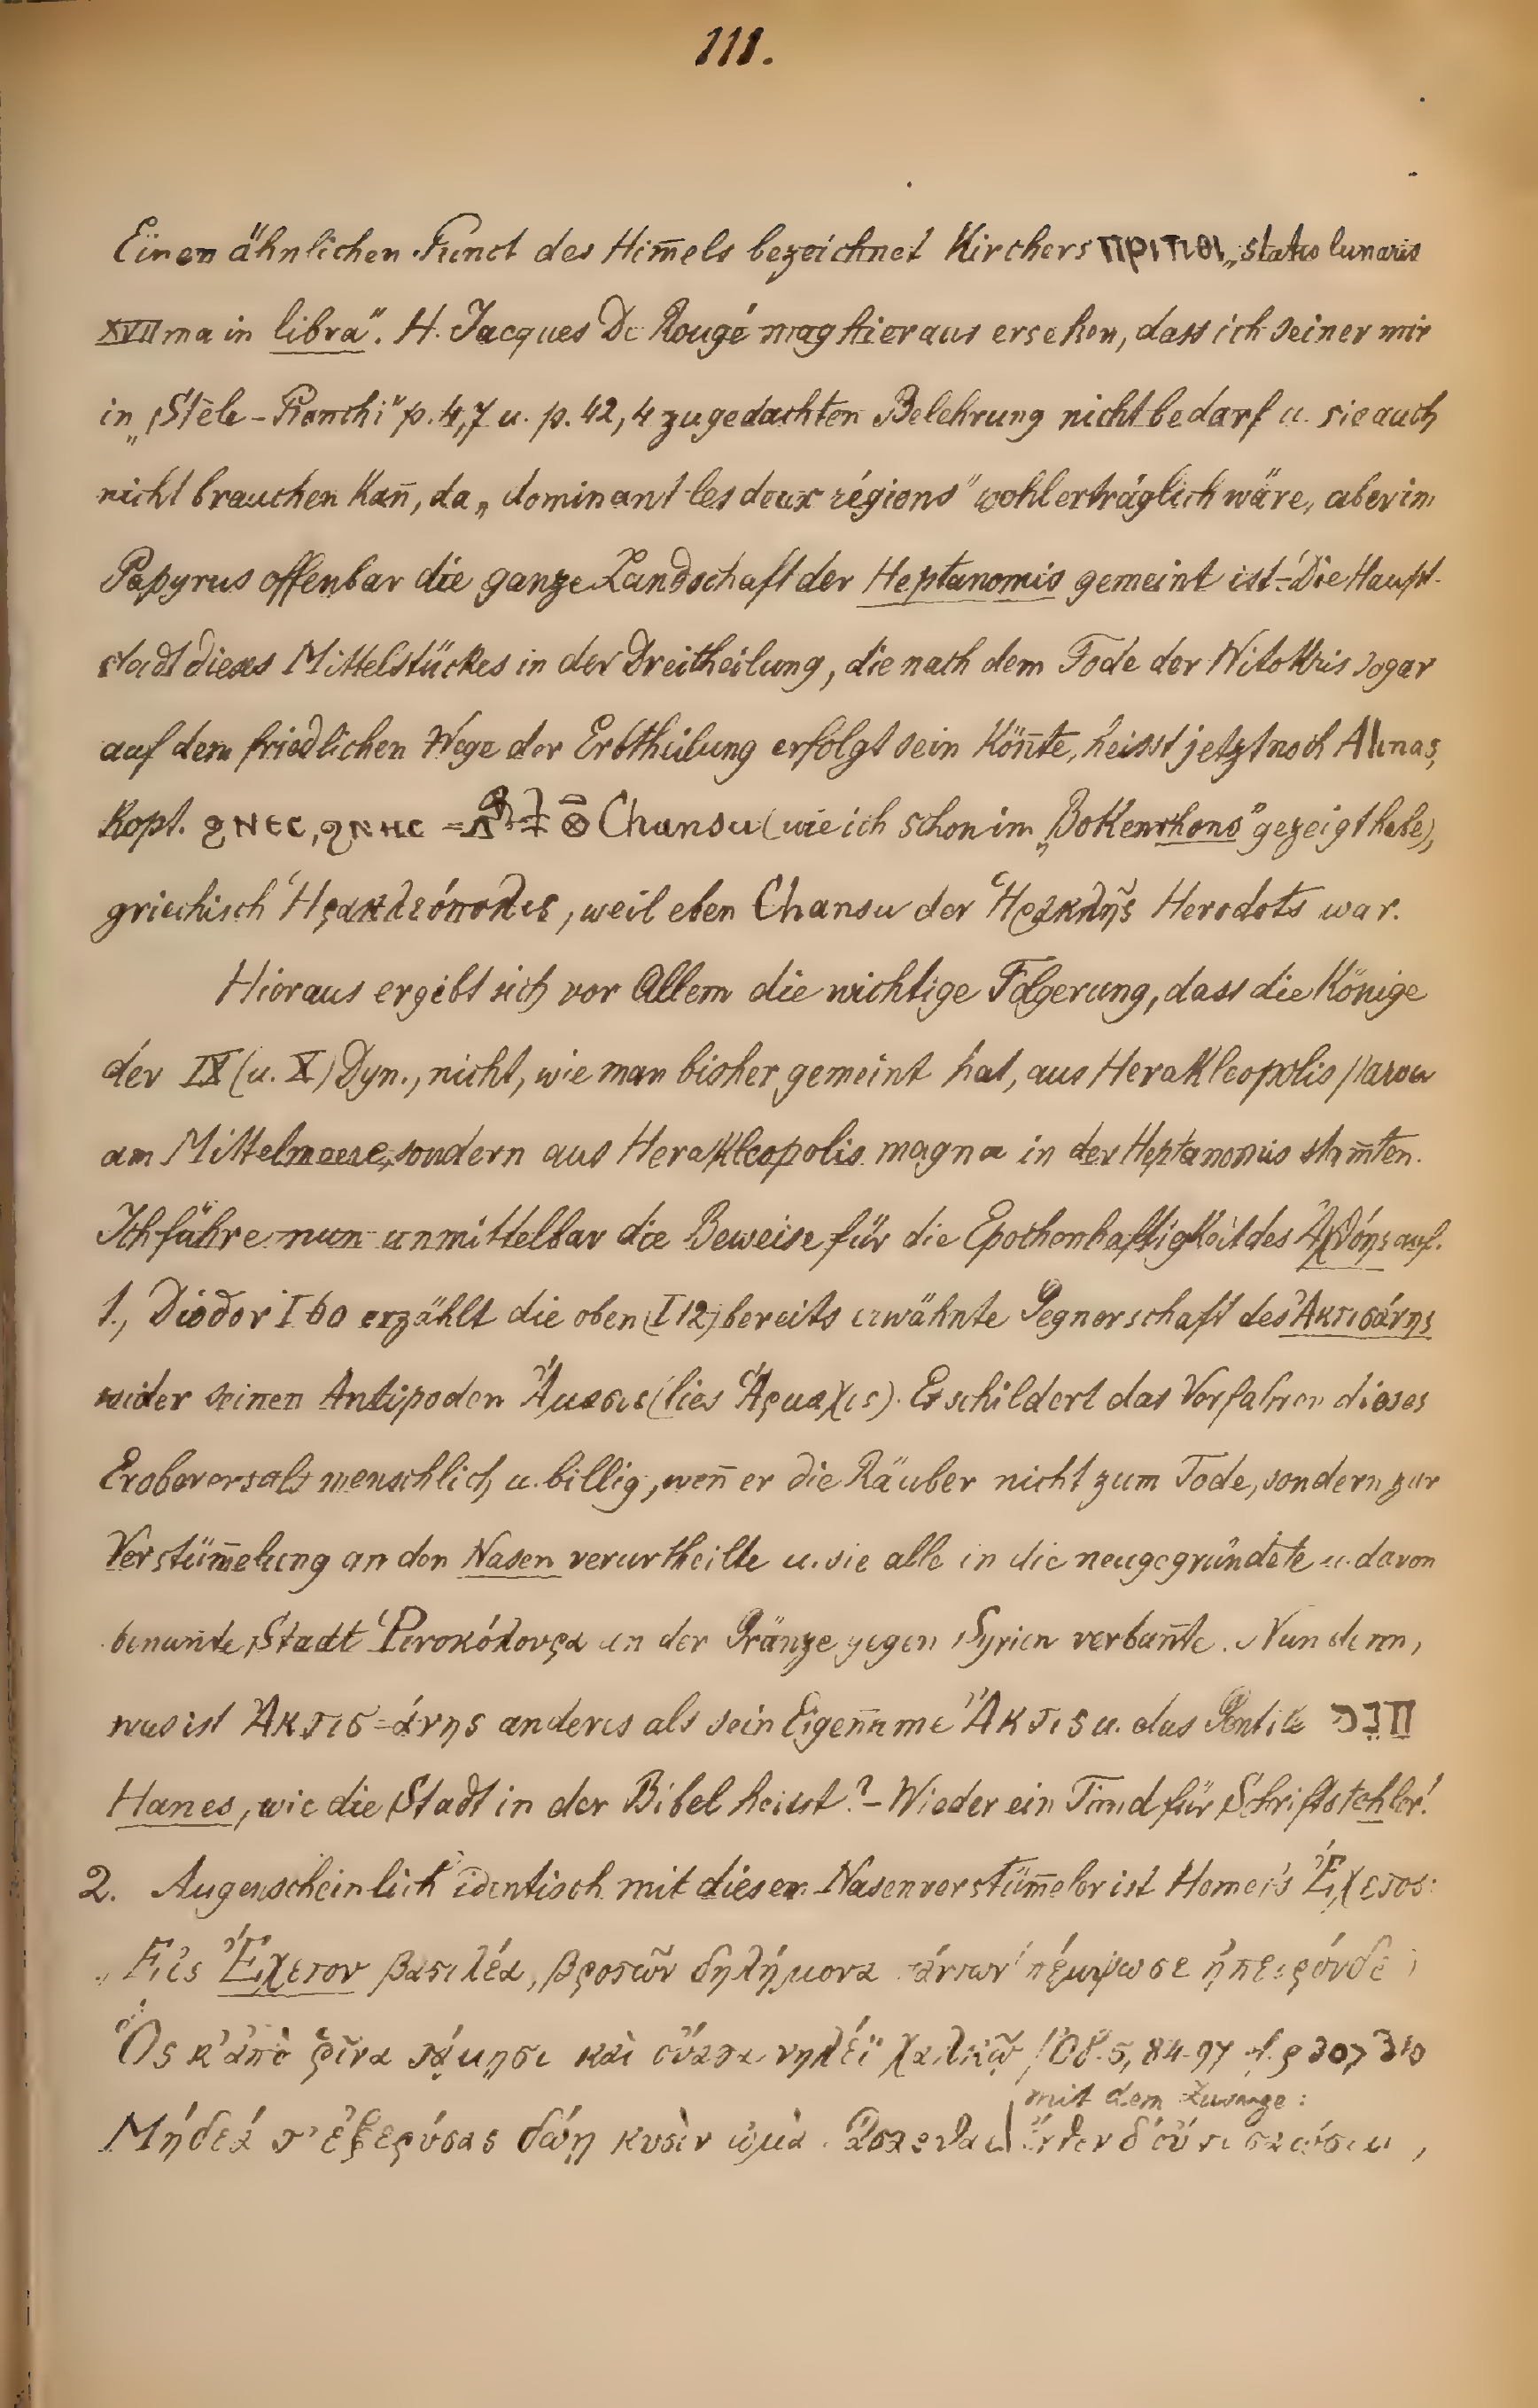 111.
Einen ähnlichen Punct des Him̄els bezeichnet Kirchers ⲡⲣⲓⲡⲑⲓ „statio lunaris
XVIIma in libra". H. Jacques De Rougé mag hieraus ersehen, dass ich seiner mir
in „Stèle-Pianchi" p. 4,7 u. p. 42,4 zugedachten Belehrung nicht bedarf u. sie auch
nicht brauchen kan̄, da „dominant les deux régions" wohl erträglich wäre, aber im
Papyrus offenbar die ganze Landschaft der Heptanomis gemeint ist. – Die Haupt-
stadt dieses Mittelstückes in der Dreitheilung, die nach dem Tode der Nitokris sogar
auf dem friedlichen Wege der Erbtheilung erfolgt sein kön̄te, heisst jetzt noch Ahnas,
kopt. ϩⲛⲉⲥ, ϩⲛⲏⲥ = Chansu (wie ich schon im „Bokenchons" gezeigt habe),
griechisch Ἡρακλεόπολις, weil eben Chansu der Ἡρακλῆς Herodots war.
Hieraus ergibt sich vor Allem die wichtige Folgerung, dass die Könige
der IX (u. X) Dyn., nicht, wie man bisher gemeint hat, aus Herakleopolis parva
am Mittelmeere, sondern aus Herakleopolis magna in der Heptanomis stam̄ten.
Ich führe nun unmittelbar die Beweise für die Epochenhaftigkeit des Ἀχθόης auf.
1., Diodor I 60 erzählt die oben (I 12) bereits erwähnte Gegnerschaft des Ἀκτισάνης
wider seinen Antipoden Ἄμασις (lies Ἄρμαχις). Er schildert das Verfahren dieses
Eroberers als menschlich u. billig, wen̄ er die Räuber nicht zum Tode, sondern zur
Verstüm̄elung an den Nasen verurtheilte u. sie alle in die neugegründete u. davon
benan̄te Stadt Ῥινοκόλουρα an der Gränze gegen Syrien verban̄te. Nun denn,
was ist Ἀκτισ=άνης anderes als sein Eigen̄ame Ἄκτις u. das Gentile חנס
Hanes, wie die Stadt in der Bibel heisst? – Wieder ein Fund für Schriftstehler!
2. Augenscheinlich identisch mit diesem Nasenverstüm̄eler ist Homer's Ἔχετος:
„Εἰς Ἔχετον βασιλέα, βροτῶν δηλήμονα πάντων πέμψωσε ἤπειρόνδε
Ὅς κ' ἀπὸ ῥῖνα τάμῃσι καὶ οὔατα νηλέϊ χαλκῷ (Od. σ, 84-97 cf. φ 307 310
mit dem Zusatze:
Μήδεά τ' ἐξερύσας δώῃ κυσὶν ὠμὰ δάσασθαι ἔνθεν δ' οὔτι σαώσεαι,